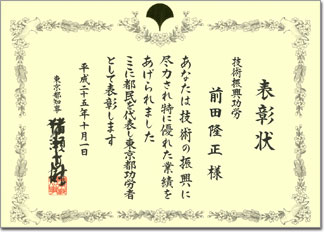 表彰状
技術振興功労
前田隆正様
あなたは技術の振興に
尽力され特に優れた業績を
あげられました
ここに都民を代表し東京都功労者
として表彰します
平成二十五年十月一日
東京都知事
猪瀬直樹